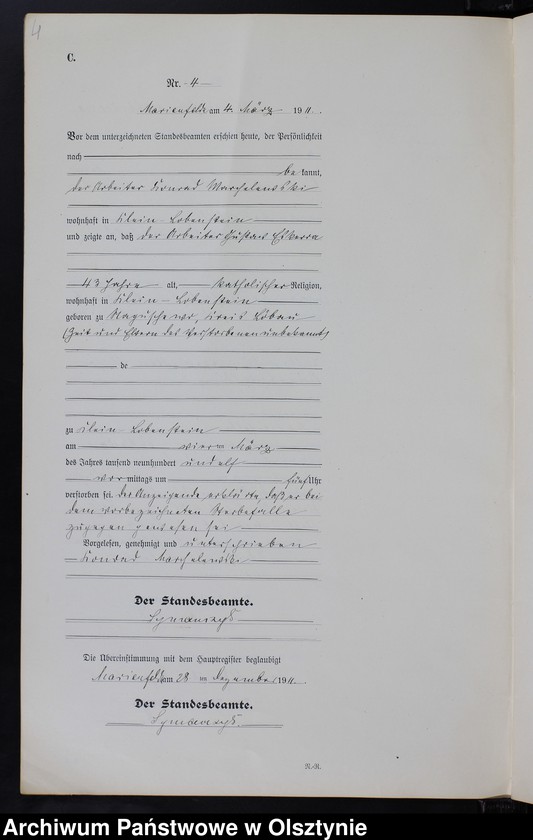 4
C.
Nr. 4
Marienfelde am 4. März 1911.
Vor dem unterzeichneten Standesbeamten erschien heute, der Persönlichkeit
nach
be kannt,
der Arbeiter Konrad Marchelewski
wohnhaft in Klein-Lobenstein
und zeigte an, daß der Arbeiter Gustav
43 Jahre alt, katholischer Religion,
wohnhaft in Klein-Lobenstein
geboren zu Kreis Löbau
(Zeit und Eltern des Verstorbenen unbekannt)
de
zu Klein-Lobenstein
am vierten März
des Jahres tausend neunhundert und elf
vor mittags um fünf Uhr
verstorben sei. Der Anzeigende erklärte, daß er bei
dem vorbezeichneten Sterbefalle
zugegen gewesen sei
Vorgelesen, genehmigt und unterschrieben
Konrad Marchelewski
Der Standesbeamte.
Die Übereinstimmung mit dem Hauptregister beglaubigt
Marienfelde am 28 ten Dezember 1911.
Der Standesbeamte.
R.-R.
Archiwum Państwowe w Olsztynie